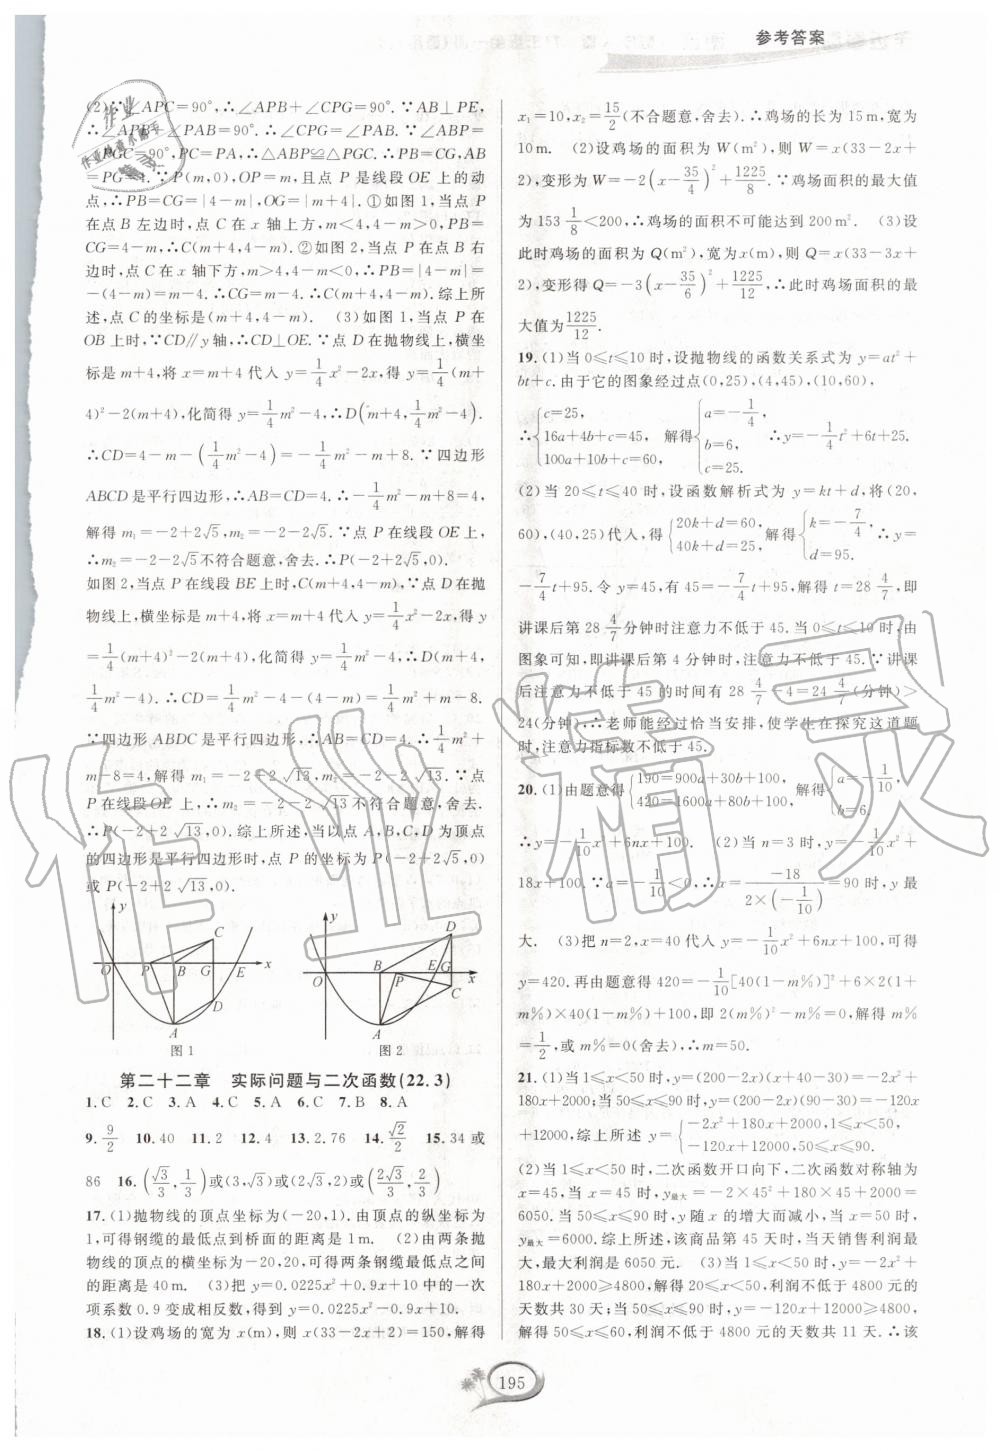 参考答案
(2)∵∠APC=90°,∴∠APB+∠CPG=90°.∵AB⊥PE,
∴∠APB+∠PAB=90°.∴∠CPG=∠PAB.∵∠ABP=
∠PGC=90°,PC=PA,∴△ABP≌△PGC.∴PB=CG,AB=
PG=4.∵P(m,0),OP=m,且点 P 是线段 OE 上的动
点,∴PB=CG=|4-m|,OG=|m+4|.①如图1,当点 P
在点 B 左边时,点 C 在 x 轴上方,m<4,4-m>0,PB=
CG=4-m,∴C(m+4,4-m).②如图2,当点 P 在点 B 右
边时,点 C 在 x 轴下方,m>4,4-m<0,∴PB=|4-m|=
-(4-m)=m-4.∴CG=m-4.∴C(m+4,4-m).综上所
述,点 C 的坐标是(m+4,4-m). (3)如图1,当点 P 在
OB 上时,∵CD∥y 轴,∴CD⊥OE.∵点 D 在抛物线上,横坐
标是 m+4,将 x=m+4 代入 y=1/4x²-2x,得 y=1/4(m+
4)²-2(m+4),化简得 y=1/4m²-4,∴D(m+4,1/4m²-4).
∴CD=4-m-(1/4m²-4)=-1/4m²-m+8.∵四边形
ABCD 是平行四边形,∴AB=CD=4.∴-1/4m²-m+8=4,
解得 m₁=-2+2√5,m₂=-2-2√5.∵点 P 在线段 OE 上,
∴m₂=-2-2√5不符合题意,舍去.∴P(-2+2√5,0).
如图2,当点 P 在线段 BE 上时,C(m+4,4-m).∵点 D 在抛
物线上,横坐标是 m+4,将 x=m+4 代入 y=1/4x²-2x,得 y
=1/4(m+4)²-2(m+4),化简得 y=1/4m²-4,∴D(m+4,
1/4m²-4).∴CD=1/4m²-4-(4-m)=1/4m²+m-8.
∵四边形 ABDC 是平行四边形,∴AB=CD=4.∴1/4m²+
m-8=4,解得 m₁=-2+2√13,m₂=-2-2√13.∵点
P 在线段 OE 上,∴m₂=-2-2√13不符合题意,舍去.
∴P(-2+2√13,0).综上所述,当以点 A,B,C,D 为顶点
的四边形是平行四边形时,点 P 的坐标为(-2+2√5,0)
或 P(-2+2√13,0).
y C O P B G E x D A
图1
y D O B P E G x C A
图2
第二十二章 实际问题与二次函数(22.3)
1.C 2.C 3.A 4.C 5.A 6.C 7.B 8.A
9.9/2 10.40 11.2 12.4 13.2.76 14.√2/2 15.34 或
86 16.(√3/3,1/3)或(3,√3)或(2√3,2)或(2√3/3,2/3)
17.(1)抛物线的顶点坐标为(-20,1).由顶点的纵坐标为
1,可得钢缆的最低点到桥面的距离是1m. (2)由两条抛
物线的顶点的横坐标为-20,20,可得两条钢缆最低点之间
的距离是40m. (3)把 y=0.0225x²+0.9x+10 中的一次
项系数0.9变成相反数,得到 y=0.0225x²-0.9x+10.
18.(1)设鸡场的宽为 x(m),则 x(33-2x+2)=150,解得
x₁=10,x₂=15/2(不合题意,舍去).∴鸡场的长为15m,宽为
10m. (2)设鸡场的面积为 W(m²),则 W=x(33-2x+
2),变形为 W=-2(x-35/4)²+1225/8.∴鸡场面积的最大值
为153 1/8<200,∴鸡场的面积不可能达到200m². (3)设
此时鸡场的面积为 Q(m²),宽为 x(m),则 Q=x(33-3x+
2),变形得 Q=-3(x-35/6)²+1225/12,∴此时鸡场面积的最
大值为1225/12.
19.(1)当0≤t≤10时,设抛物线的函数关系式为 y=at²+
bt+c.由于它的图象经过点(0,25),(4,45),(10,60),
∴{c=25, 16a+4b+c=45, 100a+10b+c=60, 解得{a=-1/4, b=6, c=25. ∴y=-1/4t²+6t+25.
(2)当20≤t≤40时,设函数解析式为 y=kt+d,将(20,
60),(40,25)代入,得{20k+d=60, 40k+d=25, 解得{k=-7/4, d=95. ∴y=
-7/4t+95.令 y=45,有45=-7/4t+95,解得 t=28 4/7,即
讲课后第28 4/7分钟时注意力不低于45.当0≤t≤10时,由
图象可知,即讲课后第4分钟时,注意力不低于45.∵讲课
后注意力不低于45的时间有28 4/7-4=24 4/7(分钟)>
24(分钟),∴老师能经过恰当安排,使学生在探究这道题
时,注意力指标数不低于45.
20.(1)由题意得{190=900a+30b+100, 420=1600a+80b+100, 解得{a=-1/10, b=6.
∴y=-1/10x²+6nx+100. (2)当 n=3 时,y=-1/10x²+
18x+100.∵a=-1/10<0,∴x=-18/(2×(-1/10))=90时,y 最
大. (3)把 n=2,x=40 代入 y=-1/10x²+6nx+100,可得
y=420.再由题意得420=-1/10[40(1-m%)]²+6×2(1+
m%)×40(1-m%)+100,即2(m%)²-m%=0,解得 m%=
1/2,或 m%=0(舍去),∴m=50.
21.(1)当1≤x<50时,y=(200-2x)(x+40-30)=-2x²+
180x+2000;当50≤x≤90时,y=(200-2x)(90-30)=-120x
+12000,综上所述 y={-2x²+180x+2000, -120x+12000.
(2)当1≤x<50时,二次函数开口向下,二次函数对称轴为
x=45,当 x=45 时,y最大=-2×45²+180×45+2000=
6050.当50≤x≤90时,y 随 x 的增大而减小,当 x=50 时,
y最大=6000.综上所述,该商品第45天时,当天销售利润最
大,最大利润是6050元. (3)当1≤x<50时,y=-2x²+
180x+2000≥4800,解得20≤x<50,利润不低于4800元的
天数共30天;当50≤x≤90时,y=-120x+12000≥4800,
解得50≤x≤60,利润不低于4800元的天数共11天.∴该
195
作业精灵